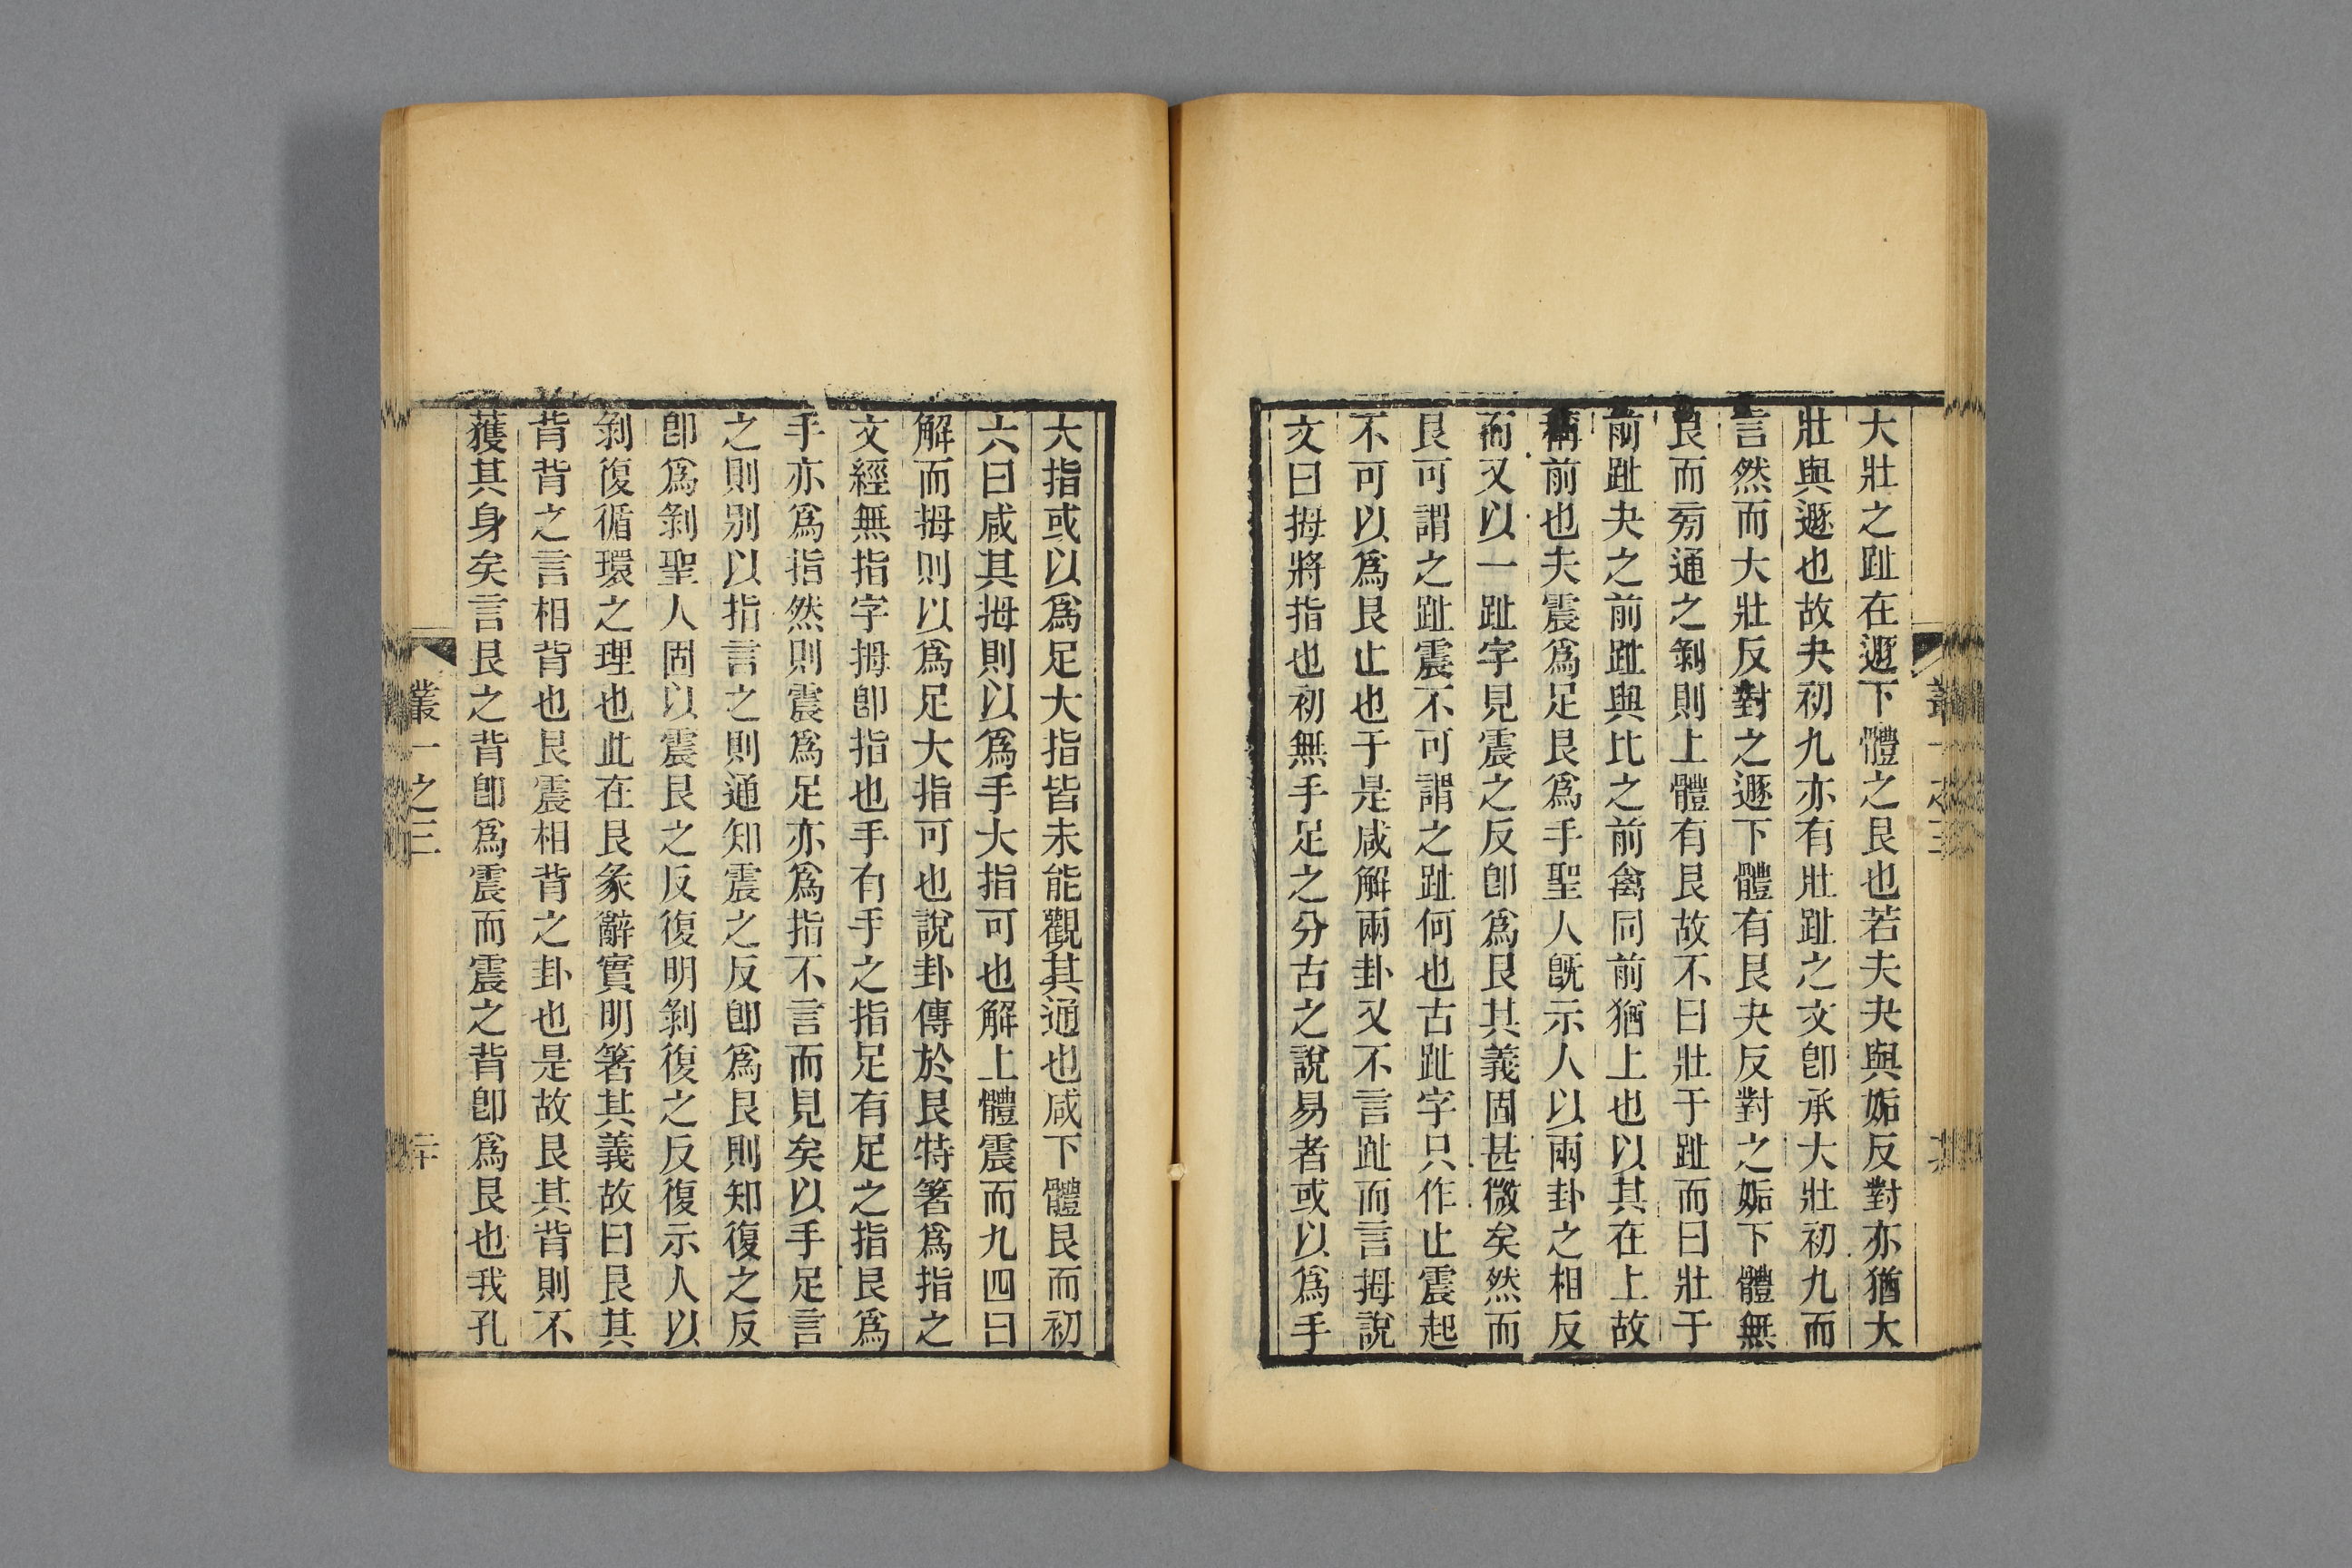 大壯之趾在遯下體之艮也若夫夬與姤反對亦猶大
壯與遯也故夬初九亦有壯趾之文卽承大壯初九而
言然而大壯反對之遯下體有艮夬反對之姤下體無
艮而旁通之剝則上體有艮故不曰壯于趾而曰壯于
前趾夬之前趾與比之前禽同前猶上也以其在上故
稱前也夫震爲足艮爲手聖人旣示人以兩卦之相反
而又以一趾字見震之反卽爲艮其義固甚微矣然而
艮可謂之趾震不可謂之趾何也古趾字只作止震起
不可以爲艮止也于是咸解兩卦又不言趾而言拇說
文曰拇將指也初無手足之分古之說易者或以爲手
大指或以爲足大指皆未能觀其通也咸下體艮而初
六曰咸其拇則以爲手大指可也解上體震而九四曰
解而拇則以爲足大指可也說卦傳於艮特箸爲指之
文經無指字拇卽指也手有手之指足有足之指艮爲
手亦爲指然則震爲足亦爲指不言而見矣以手足言
之則別以指言之則通知震之反卽爲艮則知復之反
卽爲剝聖人固以震艮之反復明剝復之反復示人以
剝復循環之理也此在艮彖辭實明箸其義故曰艮其
背背之言相背也艮震相背之卦也是故艮其背則不
獲其身矣言艮之背卽爲震而震之背卽爲艮也我孔
叢一之三
二十